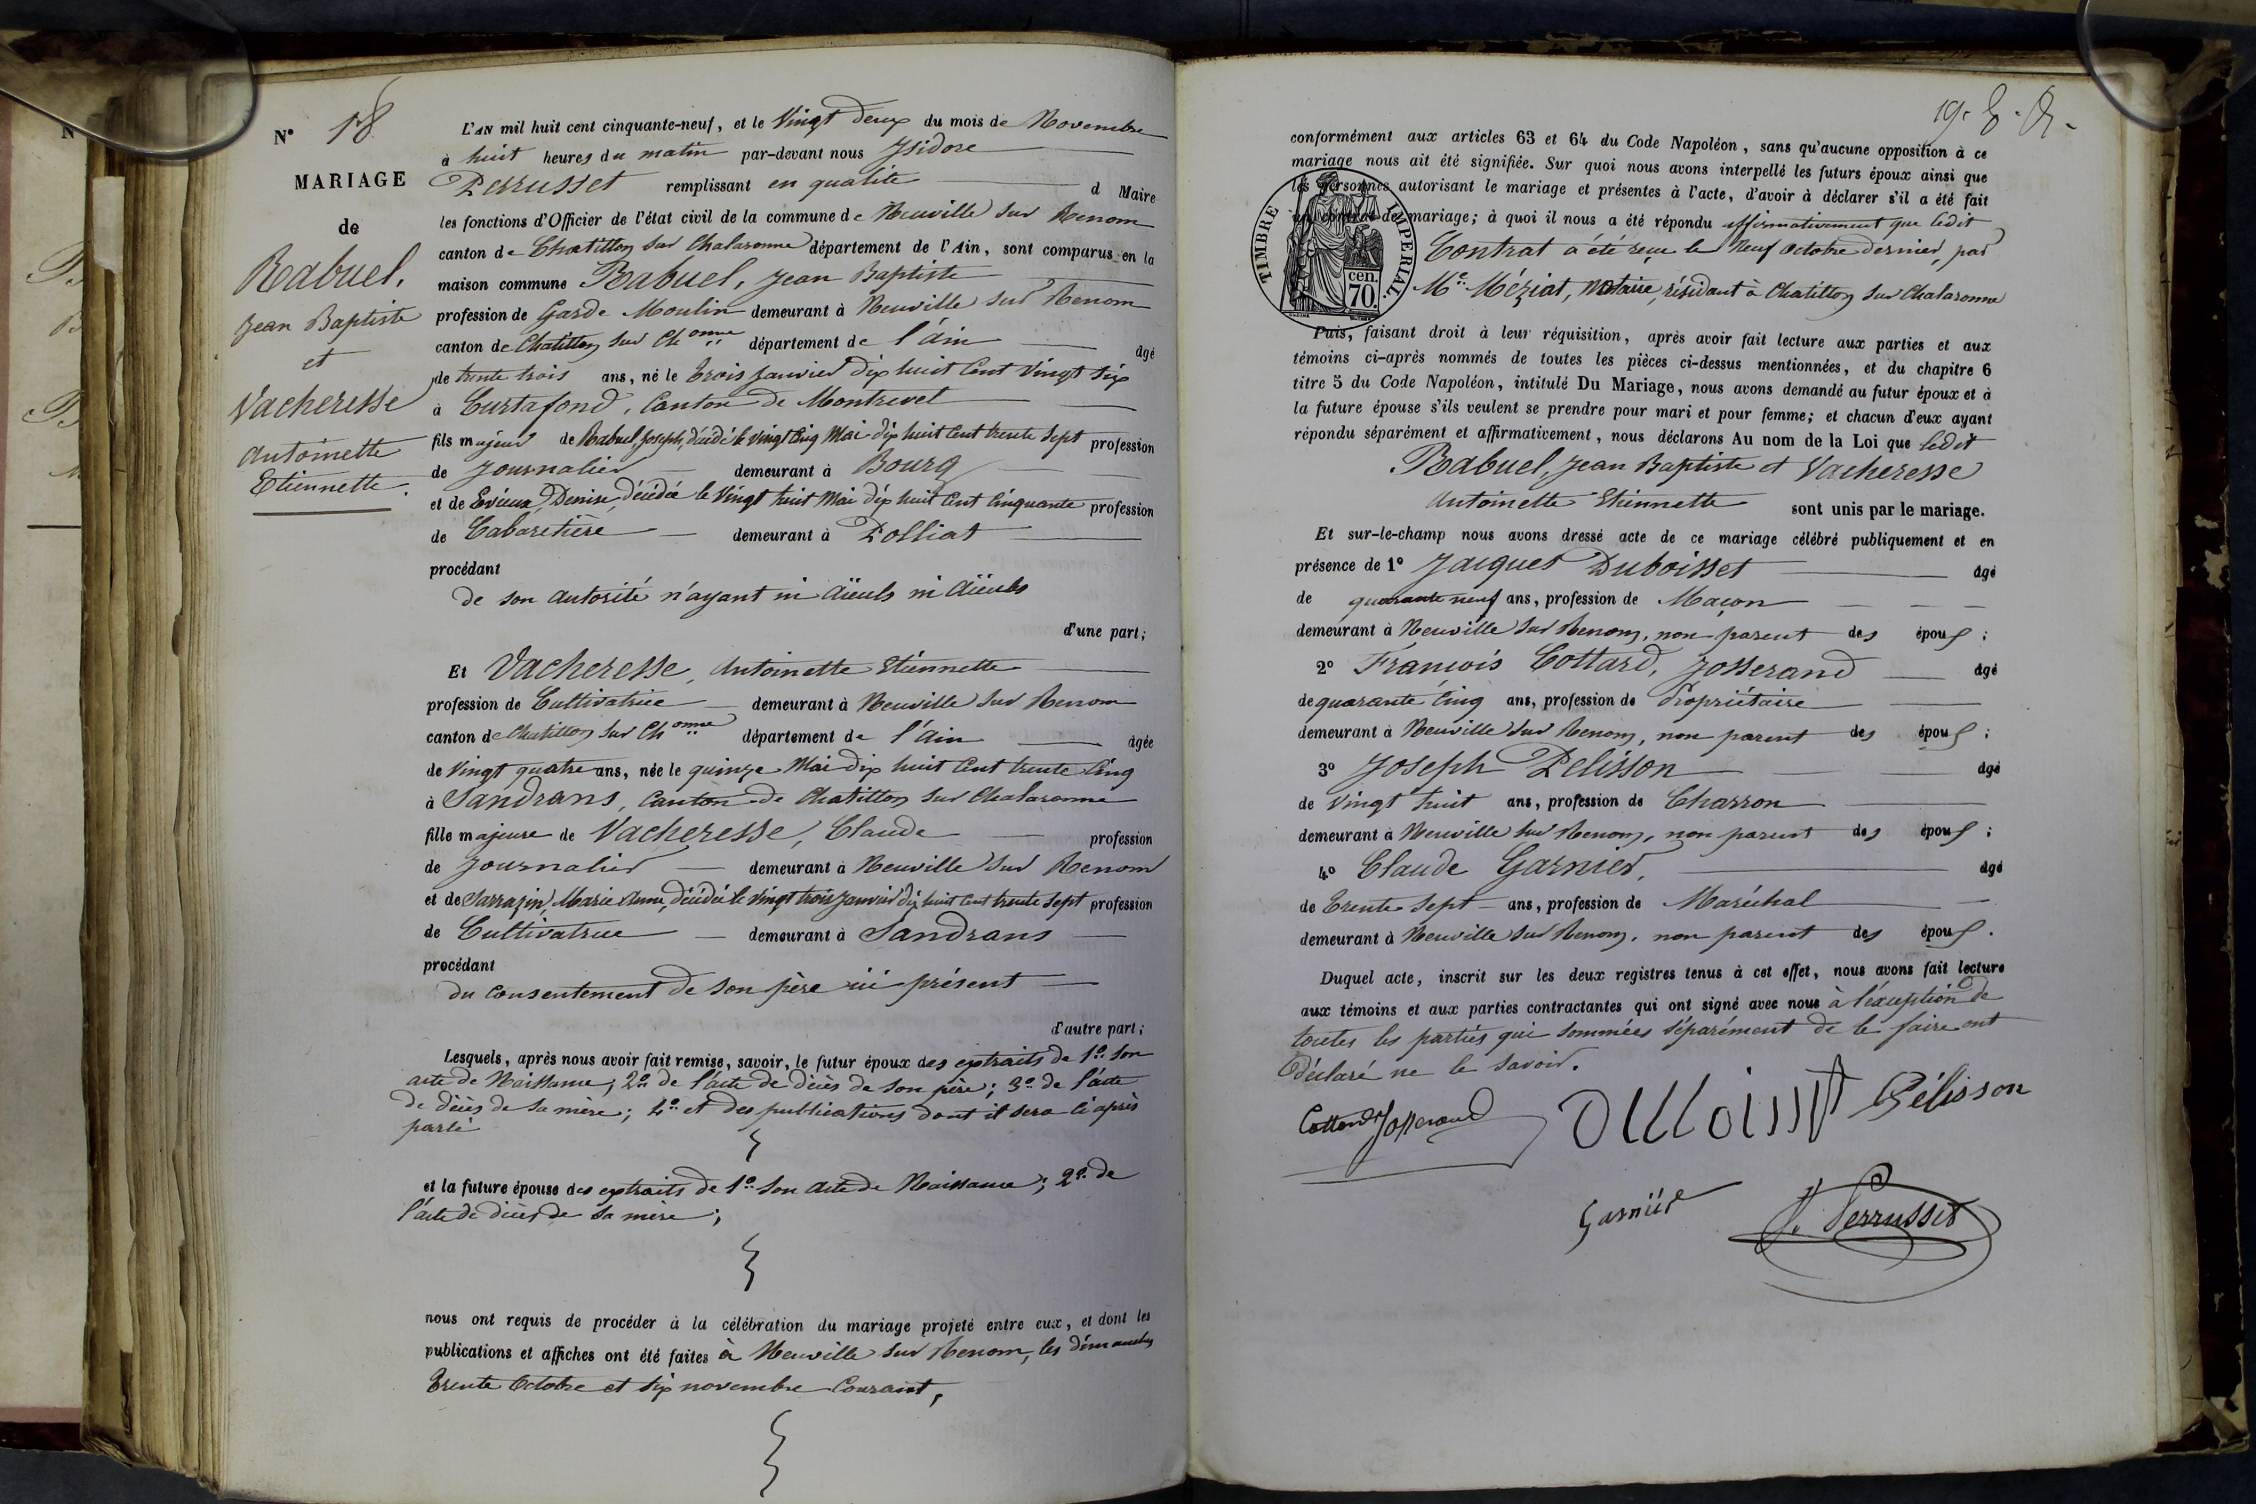 N° 18
MARIAGE
de
Rabuel,
Jean Baptiste
et
Vacheresse
Antoinette
Etiennette.
L'AN mil huit cent cinquante-neuf, et le Vingt deux du mois de Novembre
à huit heures du matin par-devant nous Isidore
Perrusset remplissant en qualité d Maire
les fonctions d'Officier de l'état civil de la commune de Neuville sur Renom
canton de Chatillon sur Chalaronne département de l'Ain, sont comparus en la
maison commune Rabuel, Jean Baptiste
profession de Garde Moulin demeurant à Neuville sur Renom
canton de Chatillon sur Chonne département de l'ain âgé
de trente trois ans, né le trois Janvier dix huit Cent vingt six
à Curtafond, Canton de Montrevel
fils majeur de Rabuel, Joseph, décédé le vingt Cinq Mai dix huit Cent trente sept profession
de Journalier demeurant à Bourg
et de Evieux, Denise, décédée le Vingt huit Mai dix huit Cent Cinquante profession
de Cabaretière demeurant à Polliat
procédant
de son autorité n'ayant ni aïeuls ni aïeules
d'une part;
Et Vacheresse, Antoinette Etiennette
profession de Cultivatrice demeurant à Neuville sur Renom
canton de Chatillon sur Chonne département de l'ain âgée
de vingt quatre ans, née le quinze Mai dix huit Cent trente Cinq
à Sandrans, Canton de Chatillon sur Chalaronne
fille majeure de Vacheresse, Claude profession
de Journalier demeurant à Neuville sur Renom
et de Sarrazin, Marie Anne, décédée le vingt trois Janvier dix huit Cent trente sept profession
de Cultivatrice demeurant à Sandrans
procédant
du consentement de son père ici présent
d'autre part;
Lesquels, après nous avoir fait remise, savoir, le futur époux des extraits de 1° son
acte de Naissance; 2° de l'acte de décès de son père; 3° de l'acte
de décès de sa mère; 4° et des publications dont il sera ci après
parlé
et la future épouse des extraits de 1° son acte de Naissance; 2° de
l'acte de décès de sa mère;
nous ont requis de procéder à la célébration du mariage projeté entre eux, et dont les
publications et affiches ont été faites à Neuville sur Renom, les dimanches
trente Octobre et six novembre Courant,
conformément aux articles 63 et 64 du Code Napoléon, sans qu'aucune opposition à ce
mariage nous ait été signifiée. Sur quoi nous avons interpellé les futurs époux ainsi que
les personnes autorisant le mariage et présentes à l'acte, d'avoir à déclarer s'il a été fait
un contrat de mariage; à quoi il nous a été répondu affirmativement que ledit
Contrat a été reçu le Neuf Octobre dernier, par
Me Méziat, Notaire, résidant à Chatillon sur Chalaronne
TIMBRE IMPERIAL.
cen.
70.
Puis, faisant droit à leur réquisition, après avoir fait lecture aux parties et aux
témoins ci-après nommés de toutes les pièces ci-dessus mentionnées, et du chapitre 6
titre 5 du Code Napoléon, intitulé Du Mariage, nous avons demandé au futur époux et à
la future épouse s'ils veulent se prendre pour mari et pour femme; et chacun d'eux ayant
répondu séparément et affirmativement, nous déclarons Au nom de la Loi que ledit
Rabuel, Jean Baptiste et Vacheresse
Antoinette Etiennette sont unis par le mariage.
Et sur-le-champ nous avons dressé acte de ce mariage célébré publiquement et en
présence de 1° Jacques Duboisset âgé
de quarante neuf ans, profession de Maçon
demeurant à Neuville sur Renom, non parent des époux;
2° François Cottard, Josserand âgé
de quarante Cinq ans, profession de Propriétaire
demeurant à Neuville sur Renom, non parent des époux;
3° Joseph Pelisson âgé
de vingt huit ans, profession de Charron
demeurant à Neuville sur Renom, non parent des époux;
4° Claude Garnier, âgé
de trente sept ans, profession de Maréchal
demeurant à Neuville sur Renom, non parent des époux.
Duquel acte, inscrit sur les deux registres tenus à cet effet, nous avons fait lecture
aux témoins et aux parties contractantes qui ont signé avec nous à l'exception de
toutes les parties qui sommées séparément de le faire ont
déclaré ne le savoir.
Josserand Pélisson
Garnier Perrusset